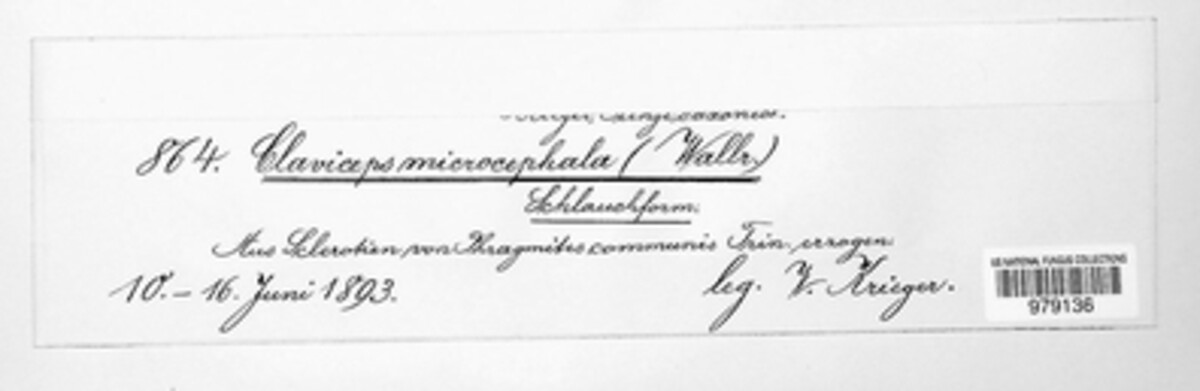 Krieger, Fungi saxonici.
864. Claviceps microcephala (Wallr.)
Schlauchform.
Aus Sclerotien von Phragmites communis Trin. erzogen.
10.–16. Juni 1893.
leg. W. Krieger.
US NATIONAL FUNGUS COLLECTIONS
979136